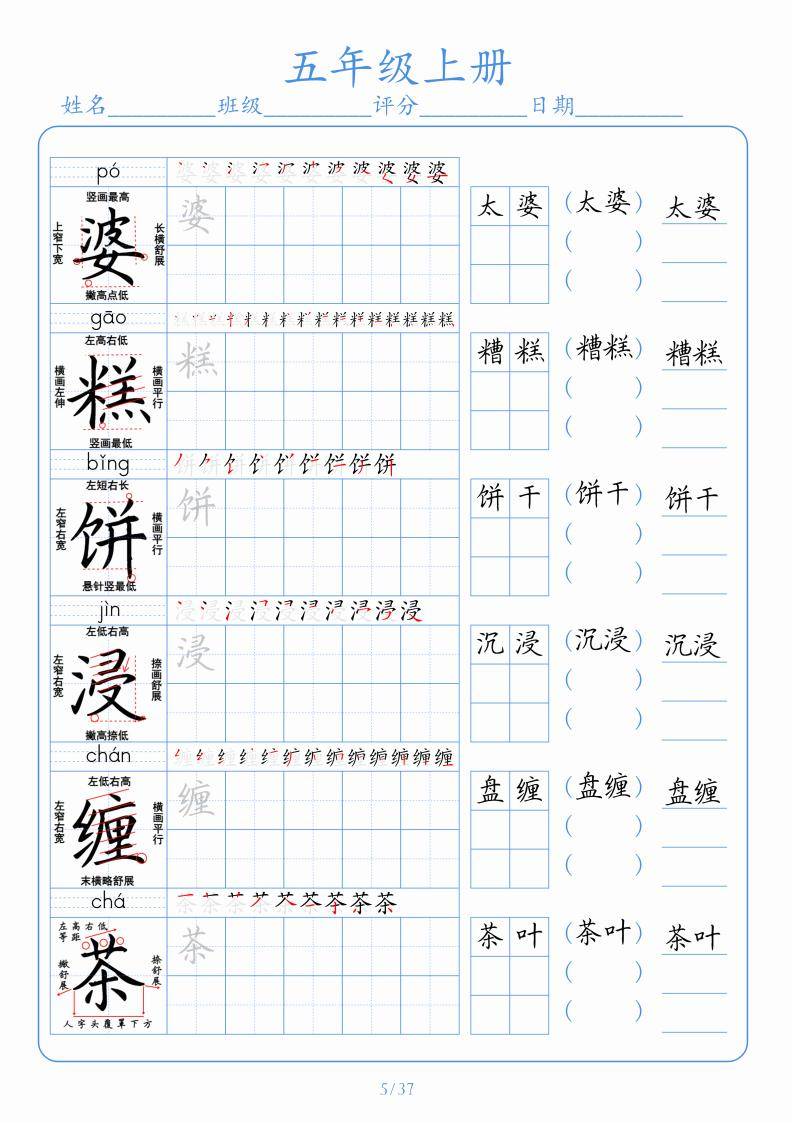 五年级上册
姓名__________班级__________评分__________日期__________
pó
婆 婆 婆 婆 婆 婆 婆 婆 婆 婆 婆
竖画最高
上窄下宽
婆
长横舒展
撇高点低
婆
太 婆 （太婆） 太婆
（ ）
（ ）
gāo
糕 糕 糕 糕 糕 糕 糕 糕 糕 糕 糕 糕 糕 糕 糕 糕
左高右低
横画左伸
糕
横画平行
竖画最低
糕
糟 糕 （糟糕） 糟糕
（ ）
（ ）
bǐng
饼 饼 饼 饼 饼 饼 饼 饼 饼
左短右长
左窄右宽
饼
横画平行
悬针竖最低
饼
饼 干 （饼干） 饼干
（ ）
（ ）
jìn
浸 浸 浸 浸 浸 浸 浸 浸 浸 浸
左低右高
左窄右宽
浸
捺画舒展
撇高捺低
浸
沉 浸 （沉浸） 沉浸
（ ）
（ ）
chán
缠 缠 缠 缠 缠 缠 缠 缠 缠 缠 缠 缠 缠
左低右高
左窄右宽
缠
横画平行
末横略舒展
缠
盘 缠 （盘缠） 盘缠
（ ）
（ ）
chá
茶 茶 茶 茶 茶 茶 茶 茶 茶
左高右低
等距
撇舒展
茶
捺舒展
人字头覆罩下方
茶
茶 叶 （茶叶） 茶叶
（ ）
（ ）
5/37